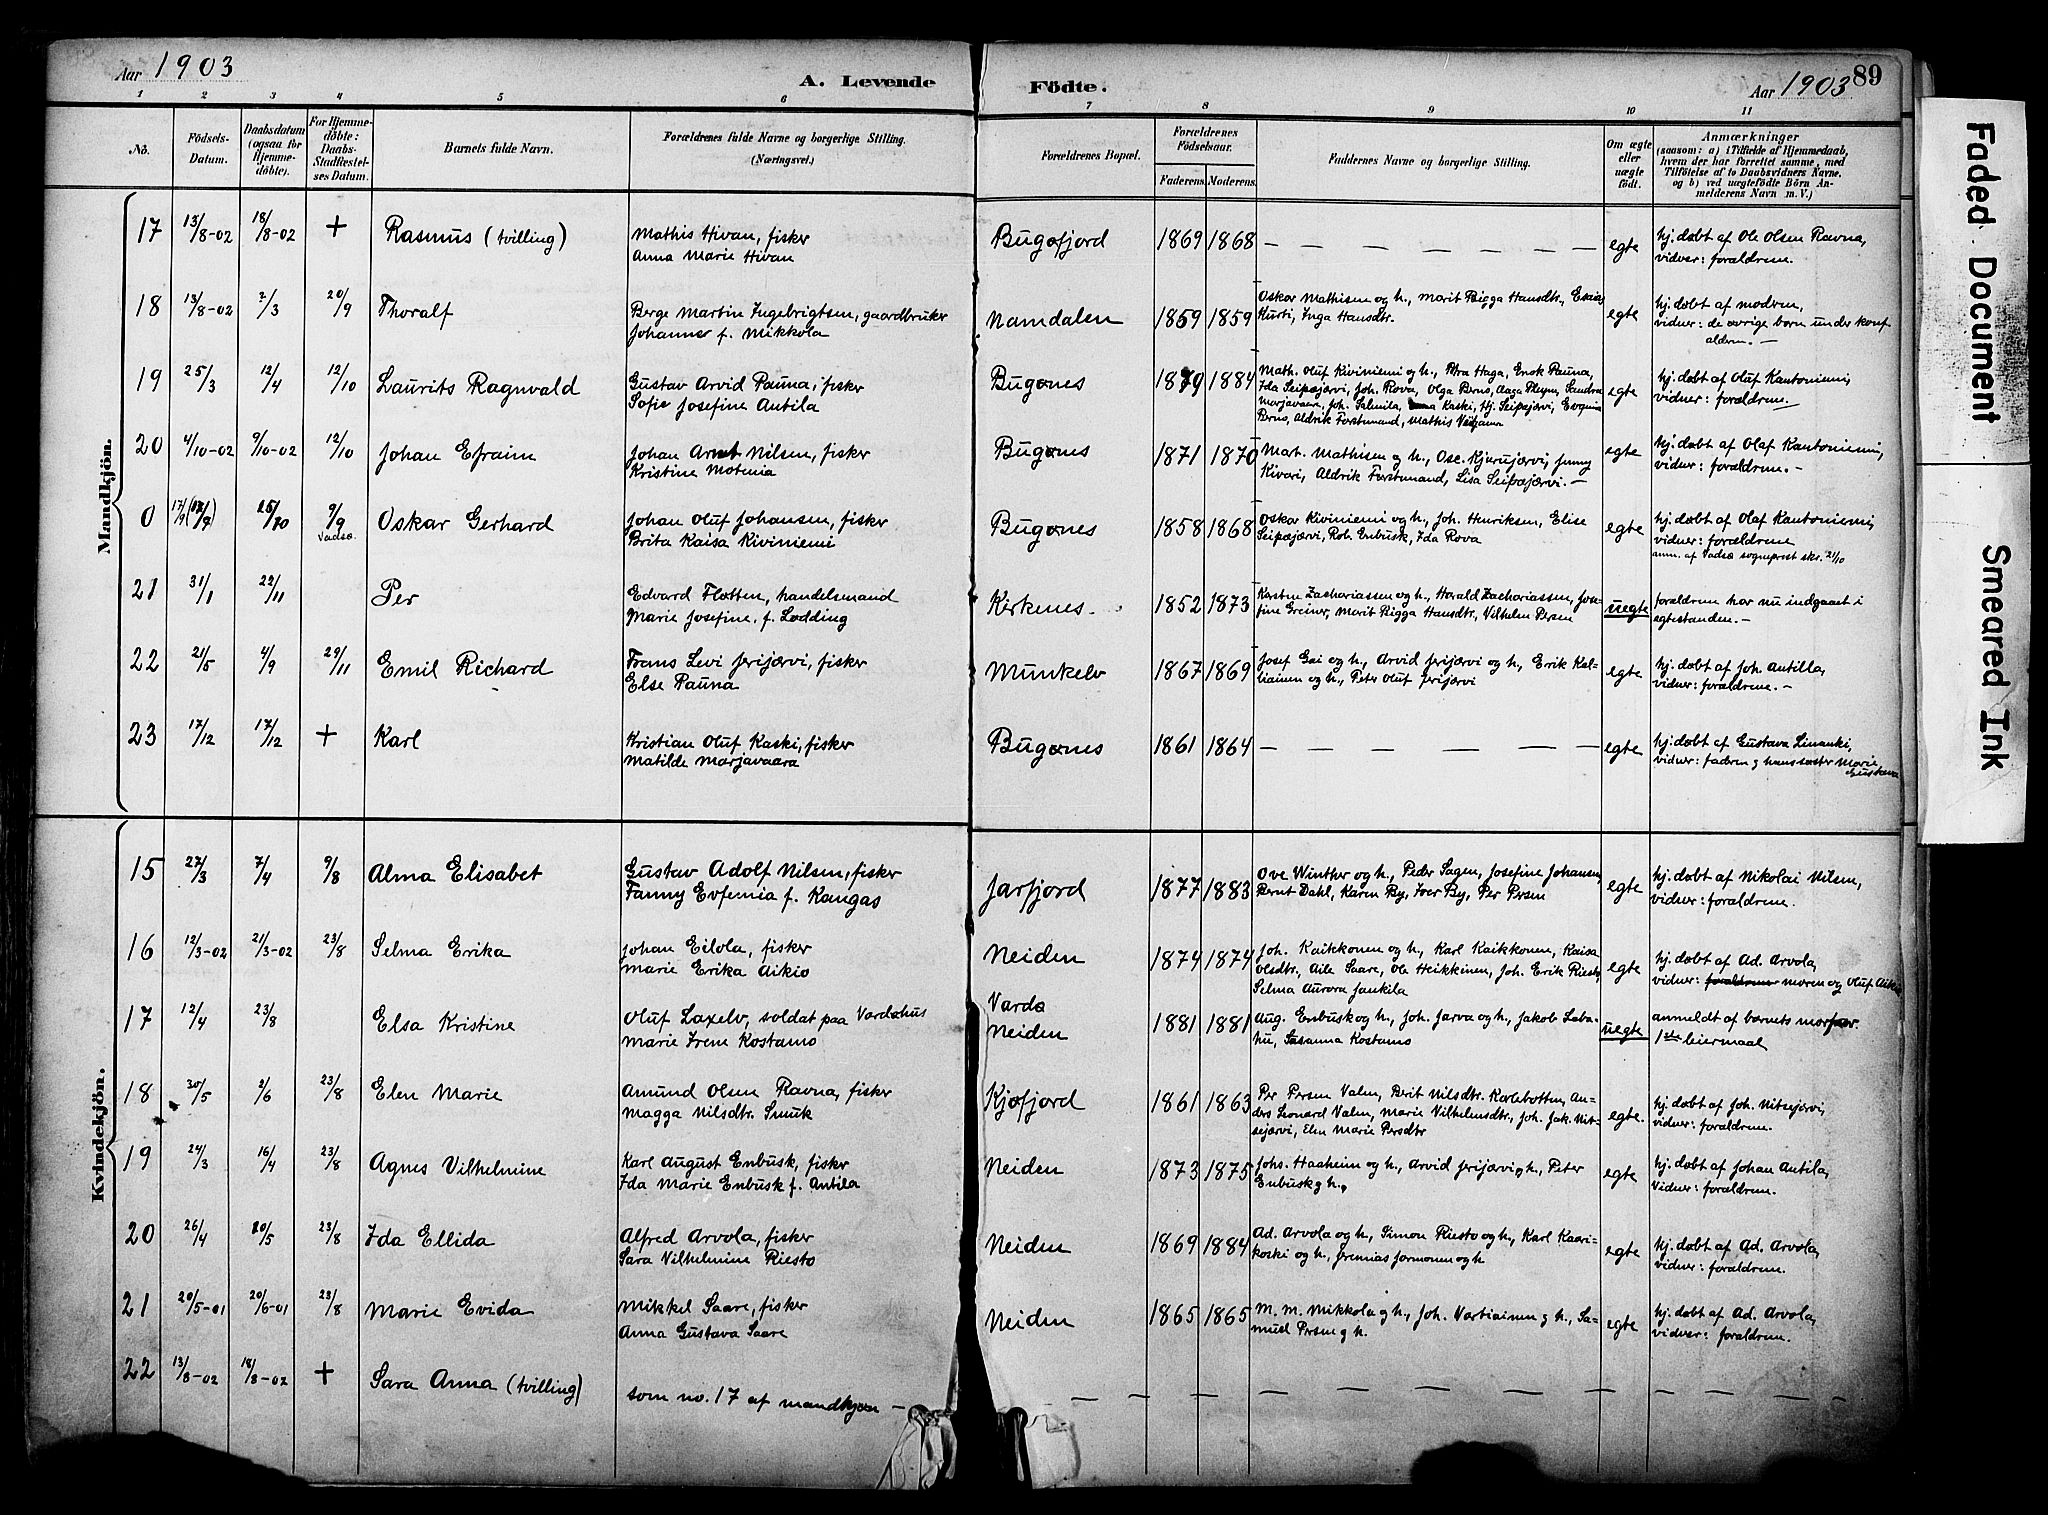 Aar 1903
A. Levende
Födte.
Aar 1903
89
1 2 3 4 5 6 7 8 9 10 11
No.
Födsels-Datum.
Daabsdatum (ogsaa for Hjemmedöbte).
For Hjemmedöbte: Daabs-Stadfæstelses Datum.
Barnets fulde Navn.
Forældrenes fulde Navne og borgerlige Stilling. (Næringsvei.)
Forældrenes Bopæl.
Forældrenes Födselsaar.
Faderens. Moderens.
Faddernes Navne og borgerlige Stilling.
Om ægte eller uægte födt.
Anmærkninger
(saasom: a) i Tilfælde af Hjemmedaab, hvem der har forrettet samme, med Tilföielse af to Daabsvidners Navne. og b) ved uægtefödte Börn Anmelderens Navn m. V.)
Mandkjön.
17 13/8-02 18/8-02 + Rasmus (tvilling) Mathis Hivan, fisker Bugøfjord 1869 1868 — — — — — — — egte hj. døbt af Ole Olsen Ravna,
Anna Marie Hivan vidner: forældrene.
18 13/8-02 2/3 20/9 Thoralf Berge Martin Ingebrigtsen, gaardbruker Namdalen 1859 1859 Oskar Mathisen og h., Marit Bigga Hansdtr., Esaias egte hj. døbt af modren,
Johanne f. Mikkola Kurti, Inga Hansdtr. vidner: de øvrige børn under konf
alderen. —
19 25/3 12/4 12/10 Laurits Ragnvald Gustav Arvid Pauna, fisker Bugønes 1879 1884 Math. Oluf Kiviniemi og h., Petra Haga, Enok Pauna, egte hj. døbt af Oluf Kantoniemi,
Sofie Josefine Antila Ida Seipæjærvi, Joh. Rova, Olga Berno, Aaga Pleym, Sandra vidner: forældrene.
Marjavaara, Joh. Salmila, Kaski, Hj. Seipæjærvi, Evgenia
Berno, Aldrik Forstrmand, Mathis
20 4/10-02 9/10-02 12/10 Johan Efraim Johan Arnt Nilsen, fisker Bugønes 1871 1870 Mart. Mathisen og h., Osc. Kjurujærvi, Jenny egte hj. døbt af Olaf Kantoniemi,
Kristine Motenia Kivari, Aldrik Forstrmand, Lisa Seipæjærvi. — vidner: forældrene. —
0 17/9 25/10 9/9 Oskar Gerhard Johan Oluf Johansen, fisker Bugønes 1858 1868 Oskar Kiviniemi og h., Joh. Henriksen, Elise egte hj. døbt af Olaf Kantoniemi,
Vadsø. Brita Kaisa Kiviniemi Seipæjærvi, Rob. Enbusk, Ida Rova vidner: forældrene
anm. af Vadsø sogneprest skr. 21/10
21 31/1 22/11 Per Edvard Fløtten, handelsmand Kirkenes. 1852 1873 Kersten Zachariassen og h., Harald Zachariassen, Jose- uegte forældrene har nu indgaaet i
Marie Josefine, f. Lødding fine Greiner, Marit Bigga Hansdtr, Vilhelm Persen egtestanden. —
22 21/5 4/9 29/11 Emil Richard Frans Levi Jerijærvi, fisker Munkelv 1867 1869 Josef Gai og h., Arvid Jerijærvi og h., Erik Kal- egte hj. døbt af Joh. Antilla,
Else Pauna liainen og h., Peter Oluf Jerijærvi vidner: forældrene. —
23 17/12 17/12 + Karl Kristian Oluf Kaski, fisker Bugønes 1861 1864 — — — — — — egte hj. døbt af Gustava Linanki,
Matilde Marjavaara vidner: fadren og hans søster Marie
Gustava
Kvindekjön.
15 27/3 7/4 9/8 Alma Elisabet Gustav Adolf Nilsen, fisker Jarfjord 1877 1883 Ove Winther og h., Peder Sagen, Josefine Johansen, egte hj. døbt af Nikolai Nilsen,
Fanny Evfemia f. Kangas Bernt Dahl, Karen By, Iver By, Per Persen vidner: forældrene.
16 12/3-02 21/3-02 23/8 Selma Erika Johan Eilola, fisker Neiden 1874 1874 Joh. Kaikkonen og h., Karl Kaikkonen, Kaisa egte hj. døbt af Ad. Arvola,
Marie Erika Aikio Olesdtr., Aile Saare, Ole Heikkinen, Joh. Erik Riesto, vidner: forældrene moren og Oluf Aikio
Selma Aurora Jankila
17 12/4 23/8 Elsa Kristine Oluf Laxelv, soldat paa Vardøhus Vardø 1881 1881 Aug. Enbusk og h., Joh. Jarva og h., Jakob Laba- uegte anmeldt af barnets morfaer.
Marie Irene Kostamo Neiden hu, Susanna Kostamo 1ste leiermaal
18 30/5 2/6 23/8 Elen Marie Amund Olsen Ravna, fisker Kjøfjord 1861 1863 Per Persen Valen, Berit Nilsdtr. Karlebotten, An- egte. hj. døbt af Joh. Nitsejærvi,
Magga Nilsdtr. Smuk ders Leonard Valen, Marie Vilhelmsdtr., Joh. Jak. Nit- vidner: forældrene.
sejærvi, Elen Marie Persdtr
19 24/3 16/4 23/8 Agnes Vilhelmine Karl August Enbusk, fisker Neiden 1873 1875 Johs. Haaheim og h., Arvid Jerijærvi og h., Peter egte hj. døbt af Johan Antila,
Ida Marie Enbusk f. Antila Enbusk og h. Vidner: forældrene.
20 26/4 20/5 23/8 Ida Ellida Alfred Arvola, fisker Neiden 1869 1884 Ad. Arvola og h., Simon Riesto og h., Karl Kaari- egte hj. døbt af Ad. Arvola,
Sara Vilhelmine Riesto koski og h., Jeremias Jormonen og h vidner: forældrene.
21 20/5-01 20/6-01 23/8 Marie Evida Mikkel Saare, fisker Neiden 1865 1865 M. M. Mikkola og h., Joh. Vartiainen og h., Sa- egte hj. døbt af Ad. Arvola,
Anna Gustava Saare muel Persen og h. vidner: forældrene.
22 13/8-02 18/8-02 + Sara Anna (tvilling) som no. 17 af mandkjøn — — — — — — — — — —
Faded Document
Smeared Ink